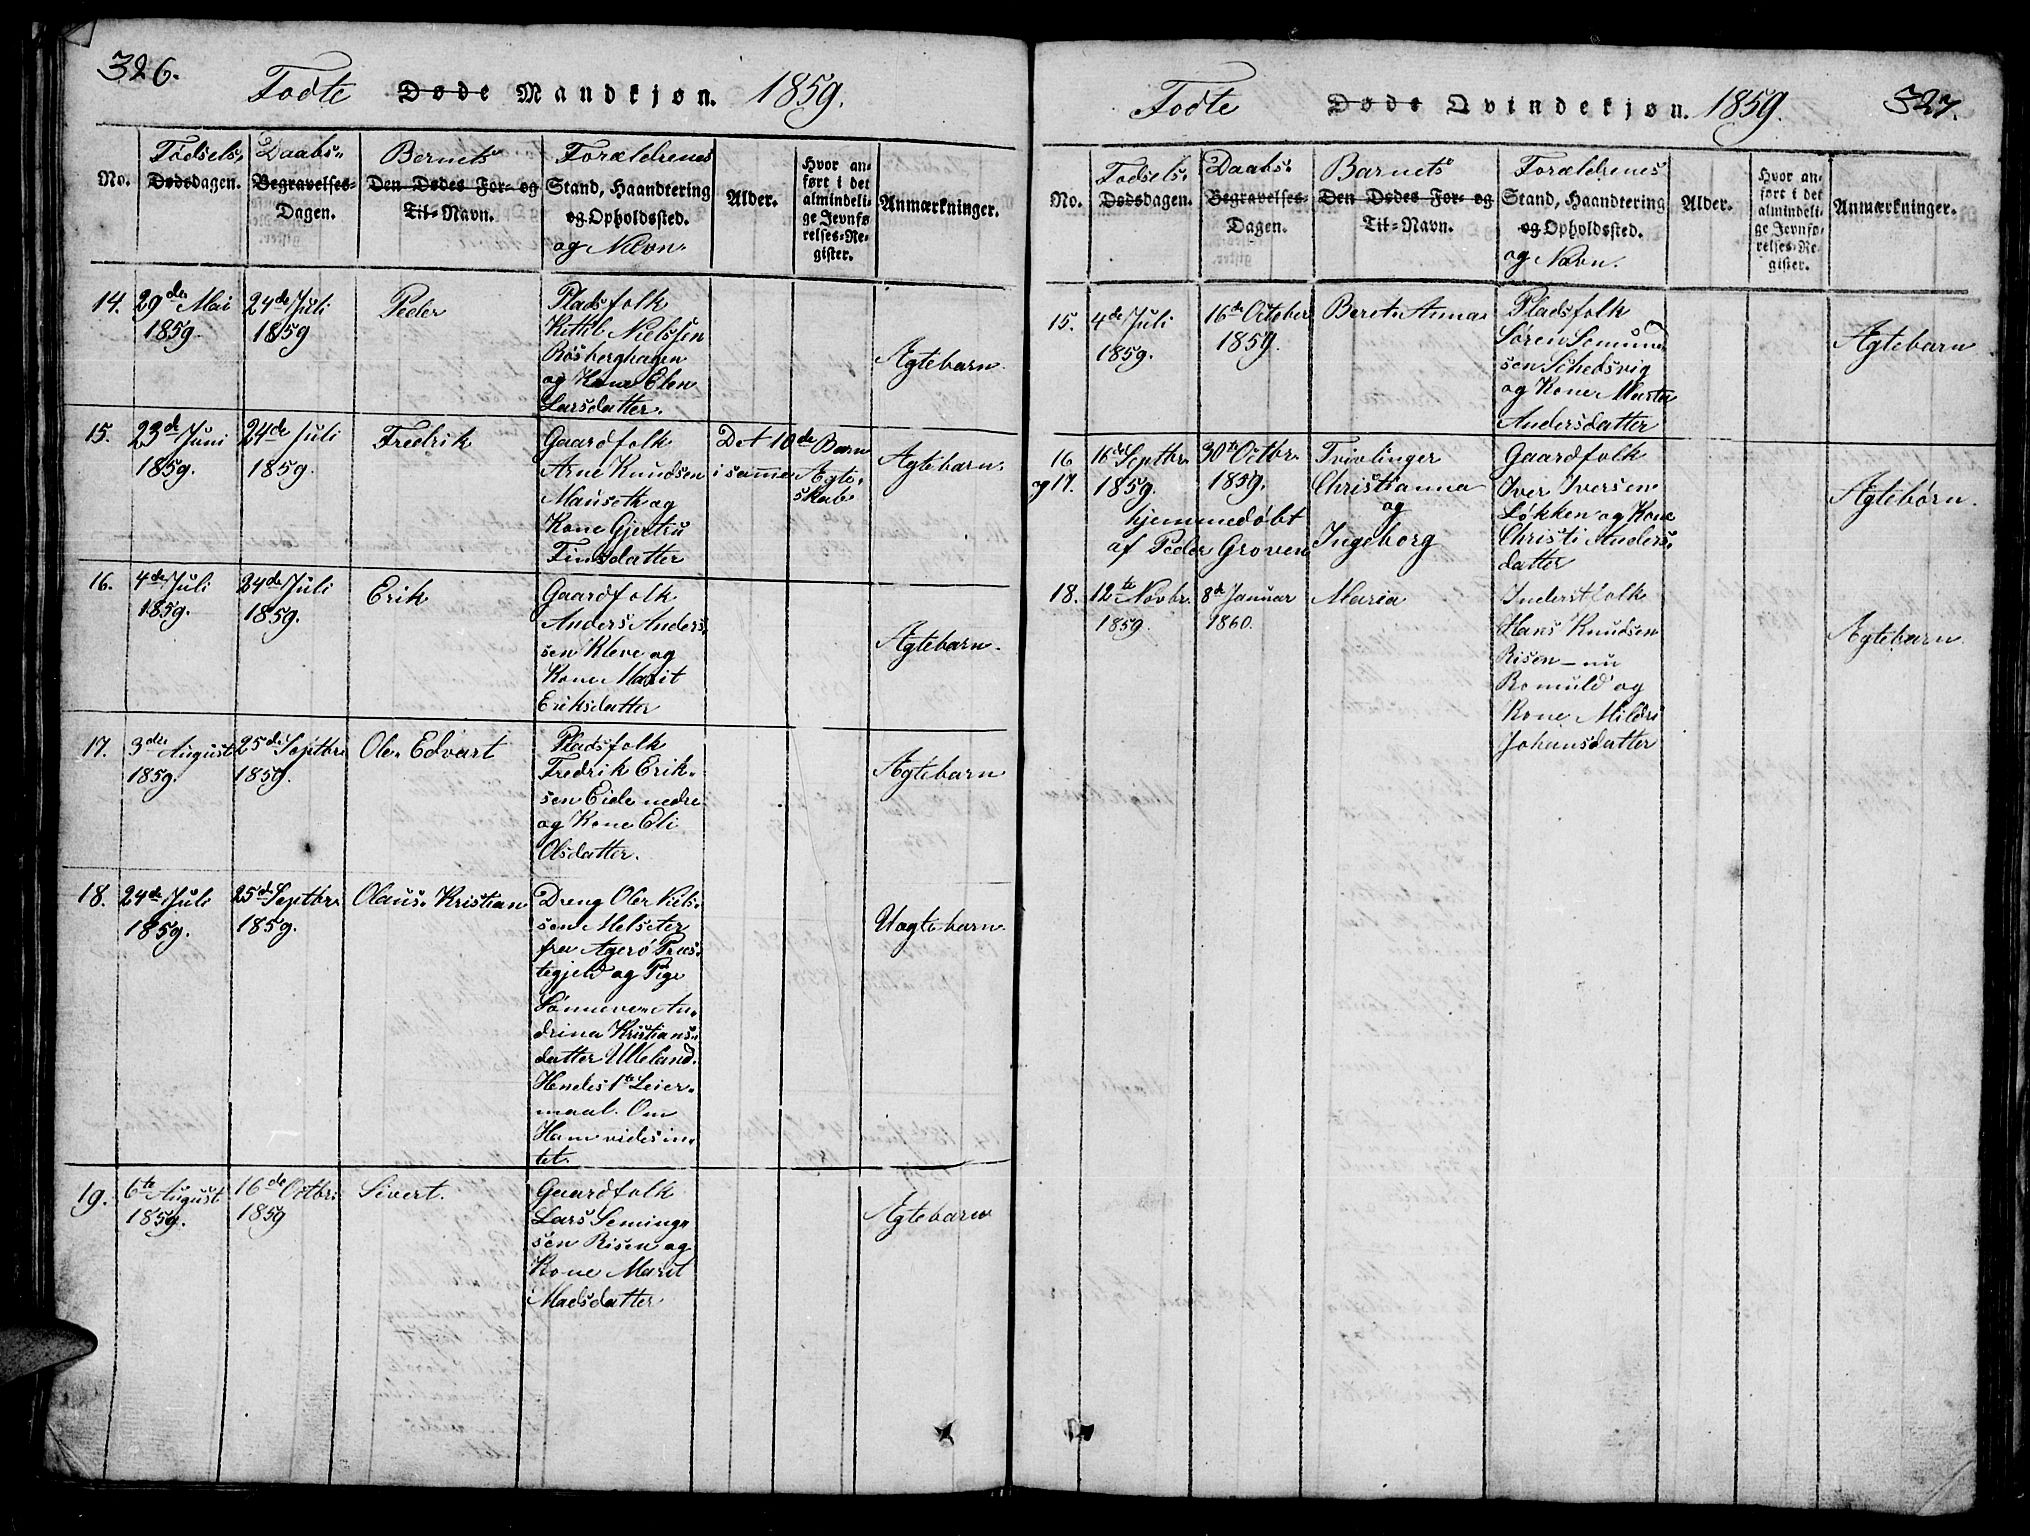 326.
Fødte Døde Mandkjøn. 1859.
No.
Fødsels-
Dødsdagen.
Daabs-
Begravelses-
Dagen.
Barnets
Den Dødes For- og
Til-Navn.
Forældrenes
Stand, Haandtering
og Opholdssted.
og Navn.
Alder.
Hvor an-
ført i det
almindeli-
ge Jevnfø-
relses-Re-
gister.
Anmærkninger.
14.
29de Mai
1859.
24de Juli
1859
Peder
Pladsfolk
Kittil Nielssen
Røsberghagen
og Kone Elen
Larsdatter.
Ægtebarn.
15.
23de Juni
1859.
24de Juli
1859.
Fredrik
Gaardfolk
Arne Knudsen
Mauseth og
Kone Gjertru
Finsdatter
Det 10de Barn
i samme Ægte-
skab
Ægtebarn.
16.
4de Juli
1859.
24de Juli
1859.
Erik
Gaardfolk
Anders Anders-
sen Kleve og
Kone Marit
Eriksdatter
Ægtebarn.
17.
3die August
1859.
25de Septbr.
1859.
Ole Edvart
Pladsfolk
Fredrik Erik-
sen Eide nedre
og Kone Eli
Olsdatter.
Ægtebarn
18.
24de Juli
1859.
25de Septbr.
1859.
Olaus Kristian
Dreng Ole Niels-
sen Melseter
fra Agerø Præs-
tegjeld og Pige
Sønneve An-
drina Kristians-
datter Ulleland.
Hendes 1te Leier-
maal. Om
Ham vides in-
tet.
Uægtebarn
19.
6te August
1859.
16de Octbr.
1859
Sivert.
Gaardfolk
Lars Seming-
sen Risen og
Kone Marit
Madsdatter
Ægtebarn
Fødte Døde Qvindekjøn. 1859. 327.
No.
Fødsels-
Dødsdagen.
Daabs-
Begravelses-
Dagen.
Barnets
Den Dødes For- og
Til-Navn.
Forældrenes
Stand, Haandtering
og Opholdssted.
og Navn.
Alder.
Hvor an-
ført i det
almindeli-
ge Jevnfø-
relses-Re-
gister.
Anmærkninger.
15.
4de Juli
1859.
16de October
1859.
Beret Anna
Pladsfolk
Søren Semund-
sen Schedsvig
og Kone Marta
Andersdatter
Ægtebarn
16
og 17.
16de Septbr.
1859.
30te Octbr.
1859.
hjemmedøbt
af Peder Groven
Tvivlinger
Christianna
og
Ingeborg
Gaardfolk
Iver Iversen
Løkken og Kone
Christi Anders-
datter
Ægtebørn.
18.
12te Novbr.
1859.
8de Januar
1860.
Maria
Inderstfolk
Hans Knudsen
Risen – nu
Romuld og
Kone Mildri
Johansdatter
Ægtebarn